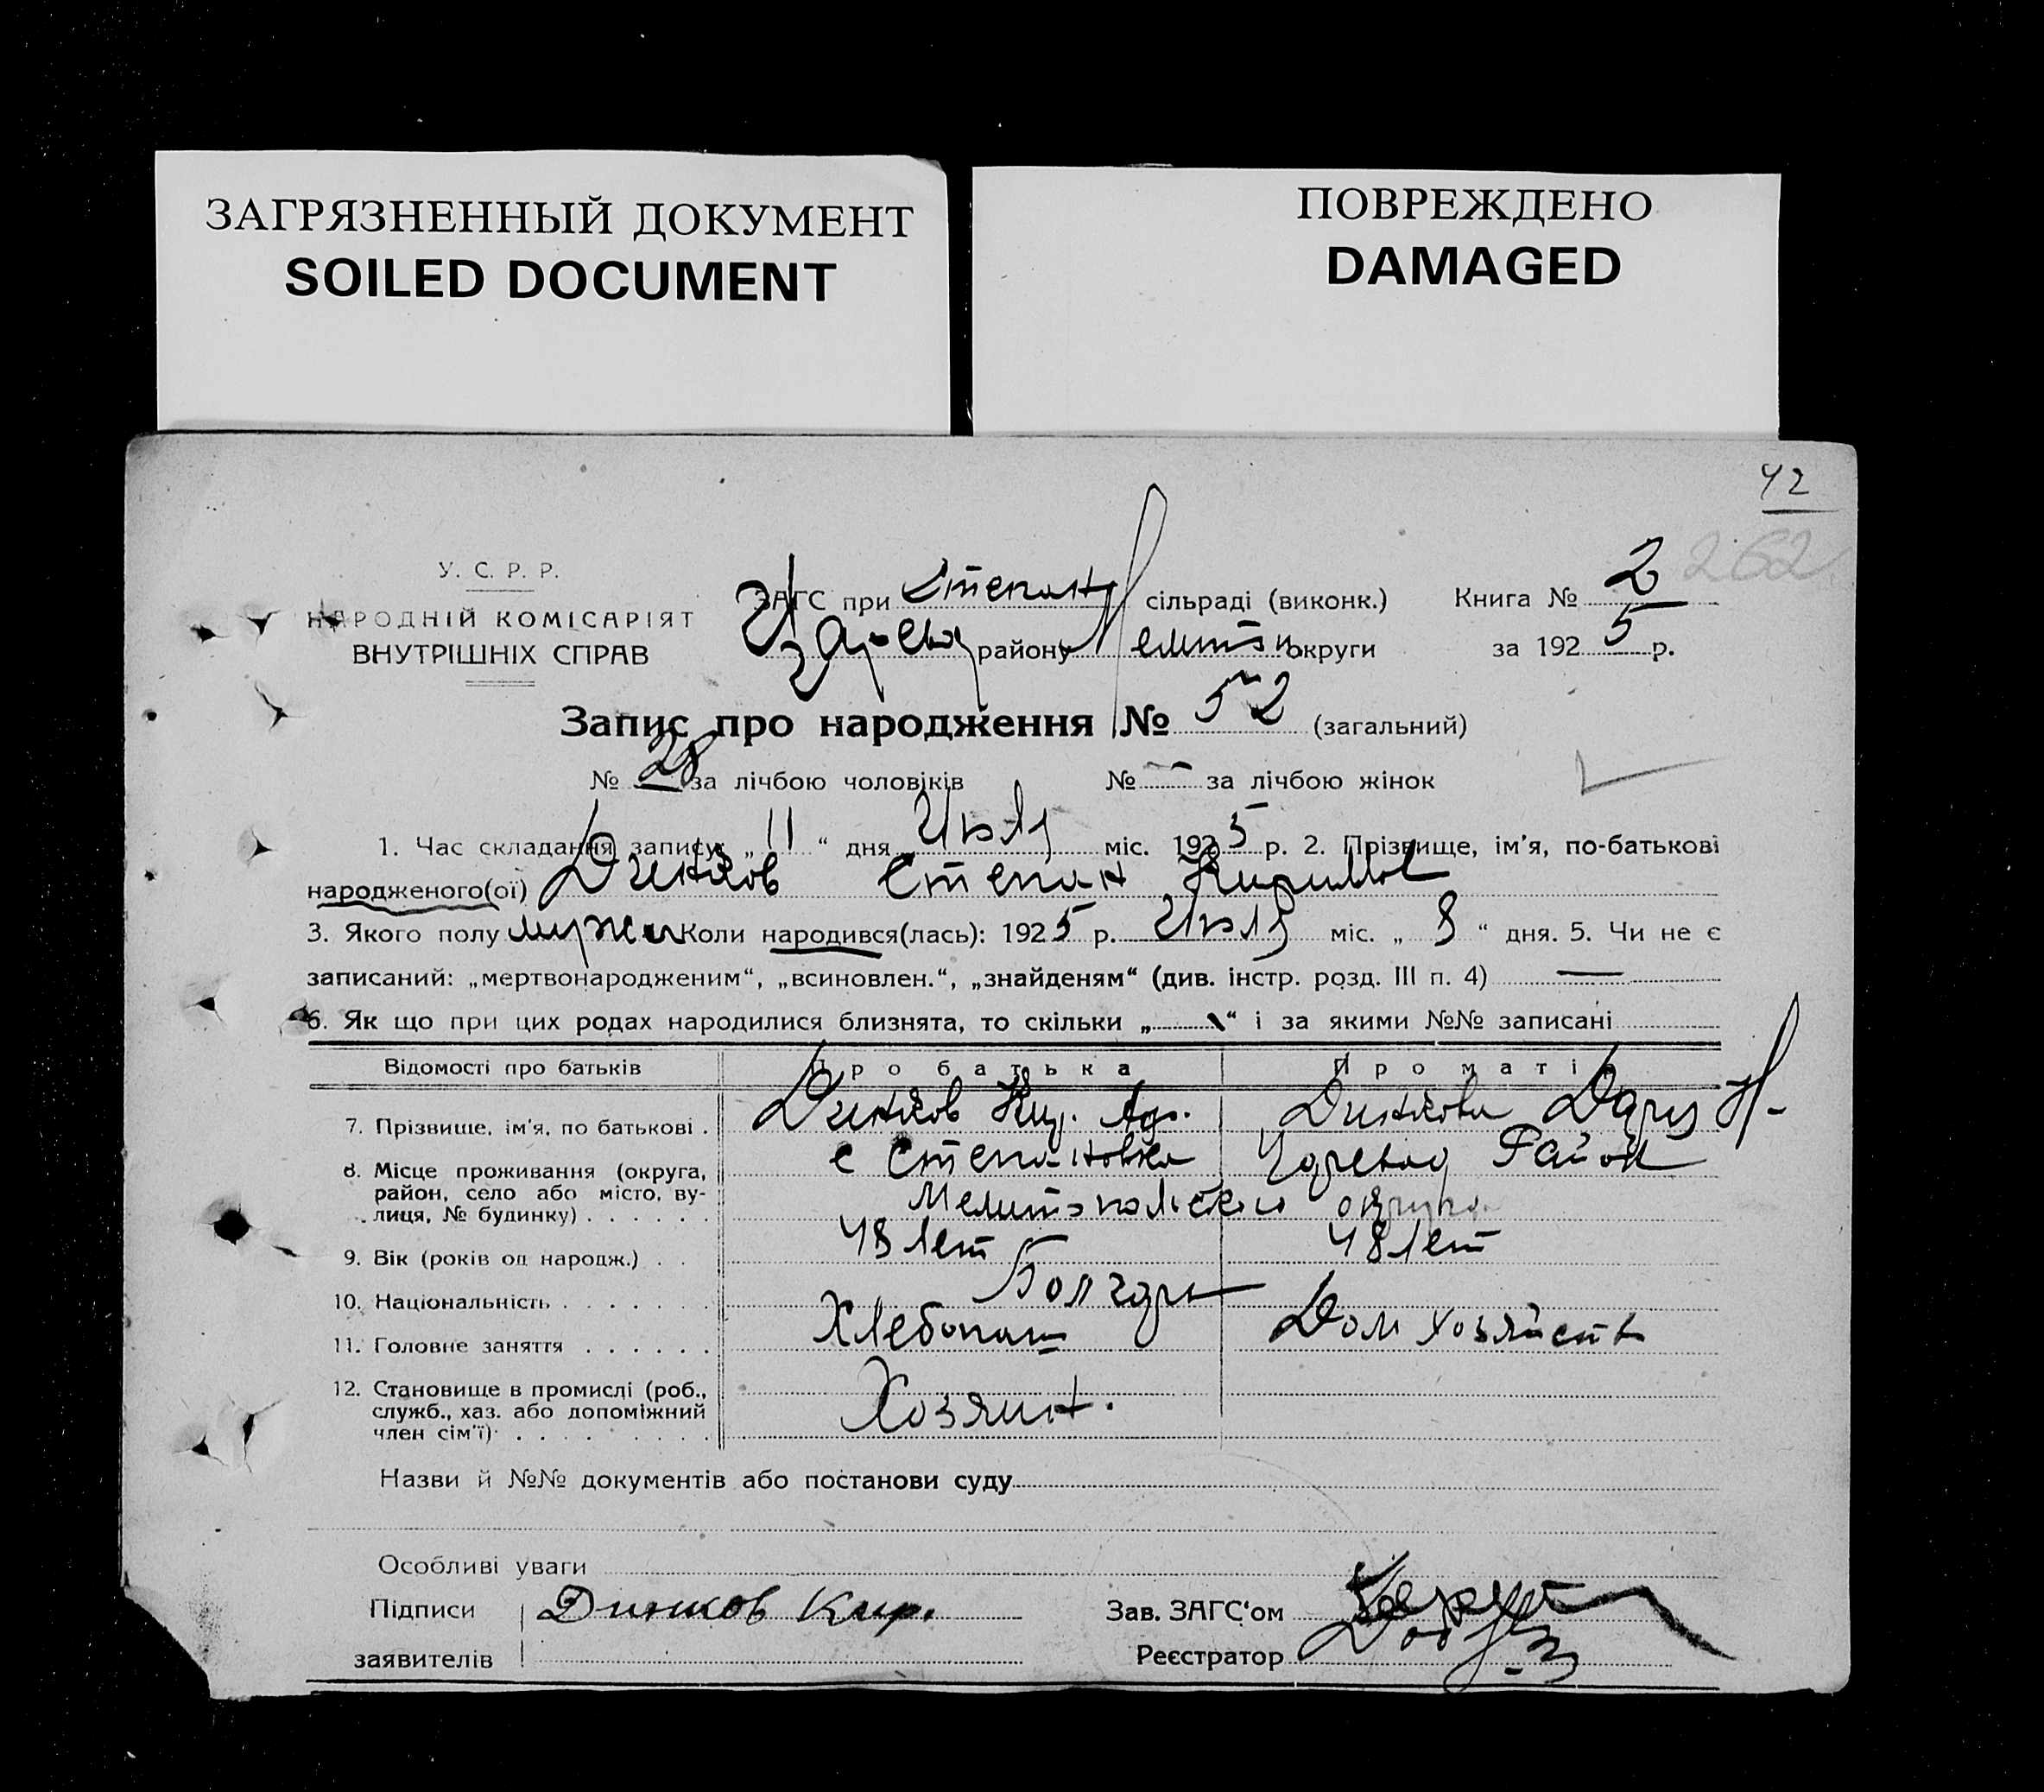 ЗАГРЯЗНЕННЫЙ ДОКУМЕНТ
SOILED DOCUMENT
ПОВРЕЖДЕНО
DAMAGED
42
262
У. С. Р. Р.
НАРОДНІЙ КОМІСАРІЯТ
ВНУТРІШНІХ СПРАВ
ЗАГС при Степан сільраді (виконк.) Книга № 2
району Мелитоп округи за 1925 р.
Запис про народження № 52 (загальний)
№ 28 за лічбою чоловіків № — за лічбою жінок
1. Час складання запису: „11“ дня Июля міс. 1925 р. 2. Прізвище, ім'я, по-батькові
народженого(ої) Динков Степан Кирилов
3. Якого полу мужч Коли народився(лась): 1925 р. Июля міс. „8“ дня. 5. Чи не є
записаний: „мертвонародженим“, „всиновлен.“, „знайденям“ (див. інстр. розд. III п. 4) —
6. Як що при цих родах народилися близнята, то скільки „ “ і за якими №№ записані
Відомості про батьків Про батька Про матір
7. Прізвище, ім'я, по батькові . Динков Кир. Динкова Дария Н-
8. Місце проживання (округа, район, село або місто, вулиця, № будинку) . . . . . . с Степановка Район
Мелитопольского округа
9. Вік (років од народж.) . . 48 лет 48 лет
10. Національність . . . . . . . Болгары
11. Головне заняття . . . . . . Хлебопаш Дом хозяйств
12. Становище в промислі (роб., служб., хаз. або допоміжний член сім'ї) . . . . . . . . . Хозяин.
Назви й №№ документів або постанови суду
Особливі уваги
Підписи заявителів Динков Кир.
Зав. ЗАГС'ом
Реєстратор